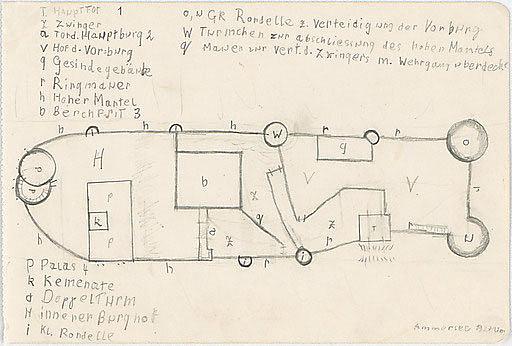 T Haupttor 1
Z Zwinger
a Tord. Hauptburg 2
V Hof d. Vorburg
g Gesindegebäude
r Ringmauer
h Hoher Mantel
b Berchfrit 3
o, N Gr Rondelle z. Verteidigung der Vorburg
W Türmchen zur abschliessung des hohen Mantels
q Mauer zur vert. d. Zwingers m. Wehrgang überdeckt
h h h W r r o
g
H b V V
p z q r
k a
p z z T
h h i r i r N
P Palas 4
k Kemenate
d Doppelturm
H innerer Burghof
i kl. Rondelle
Ammersee